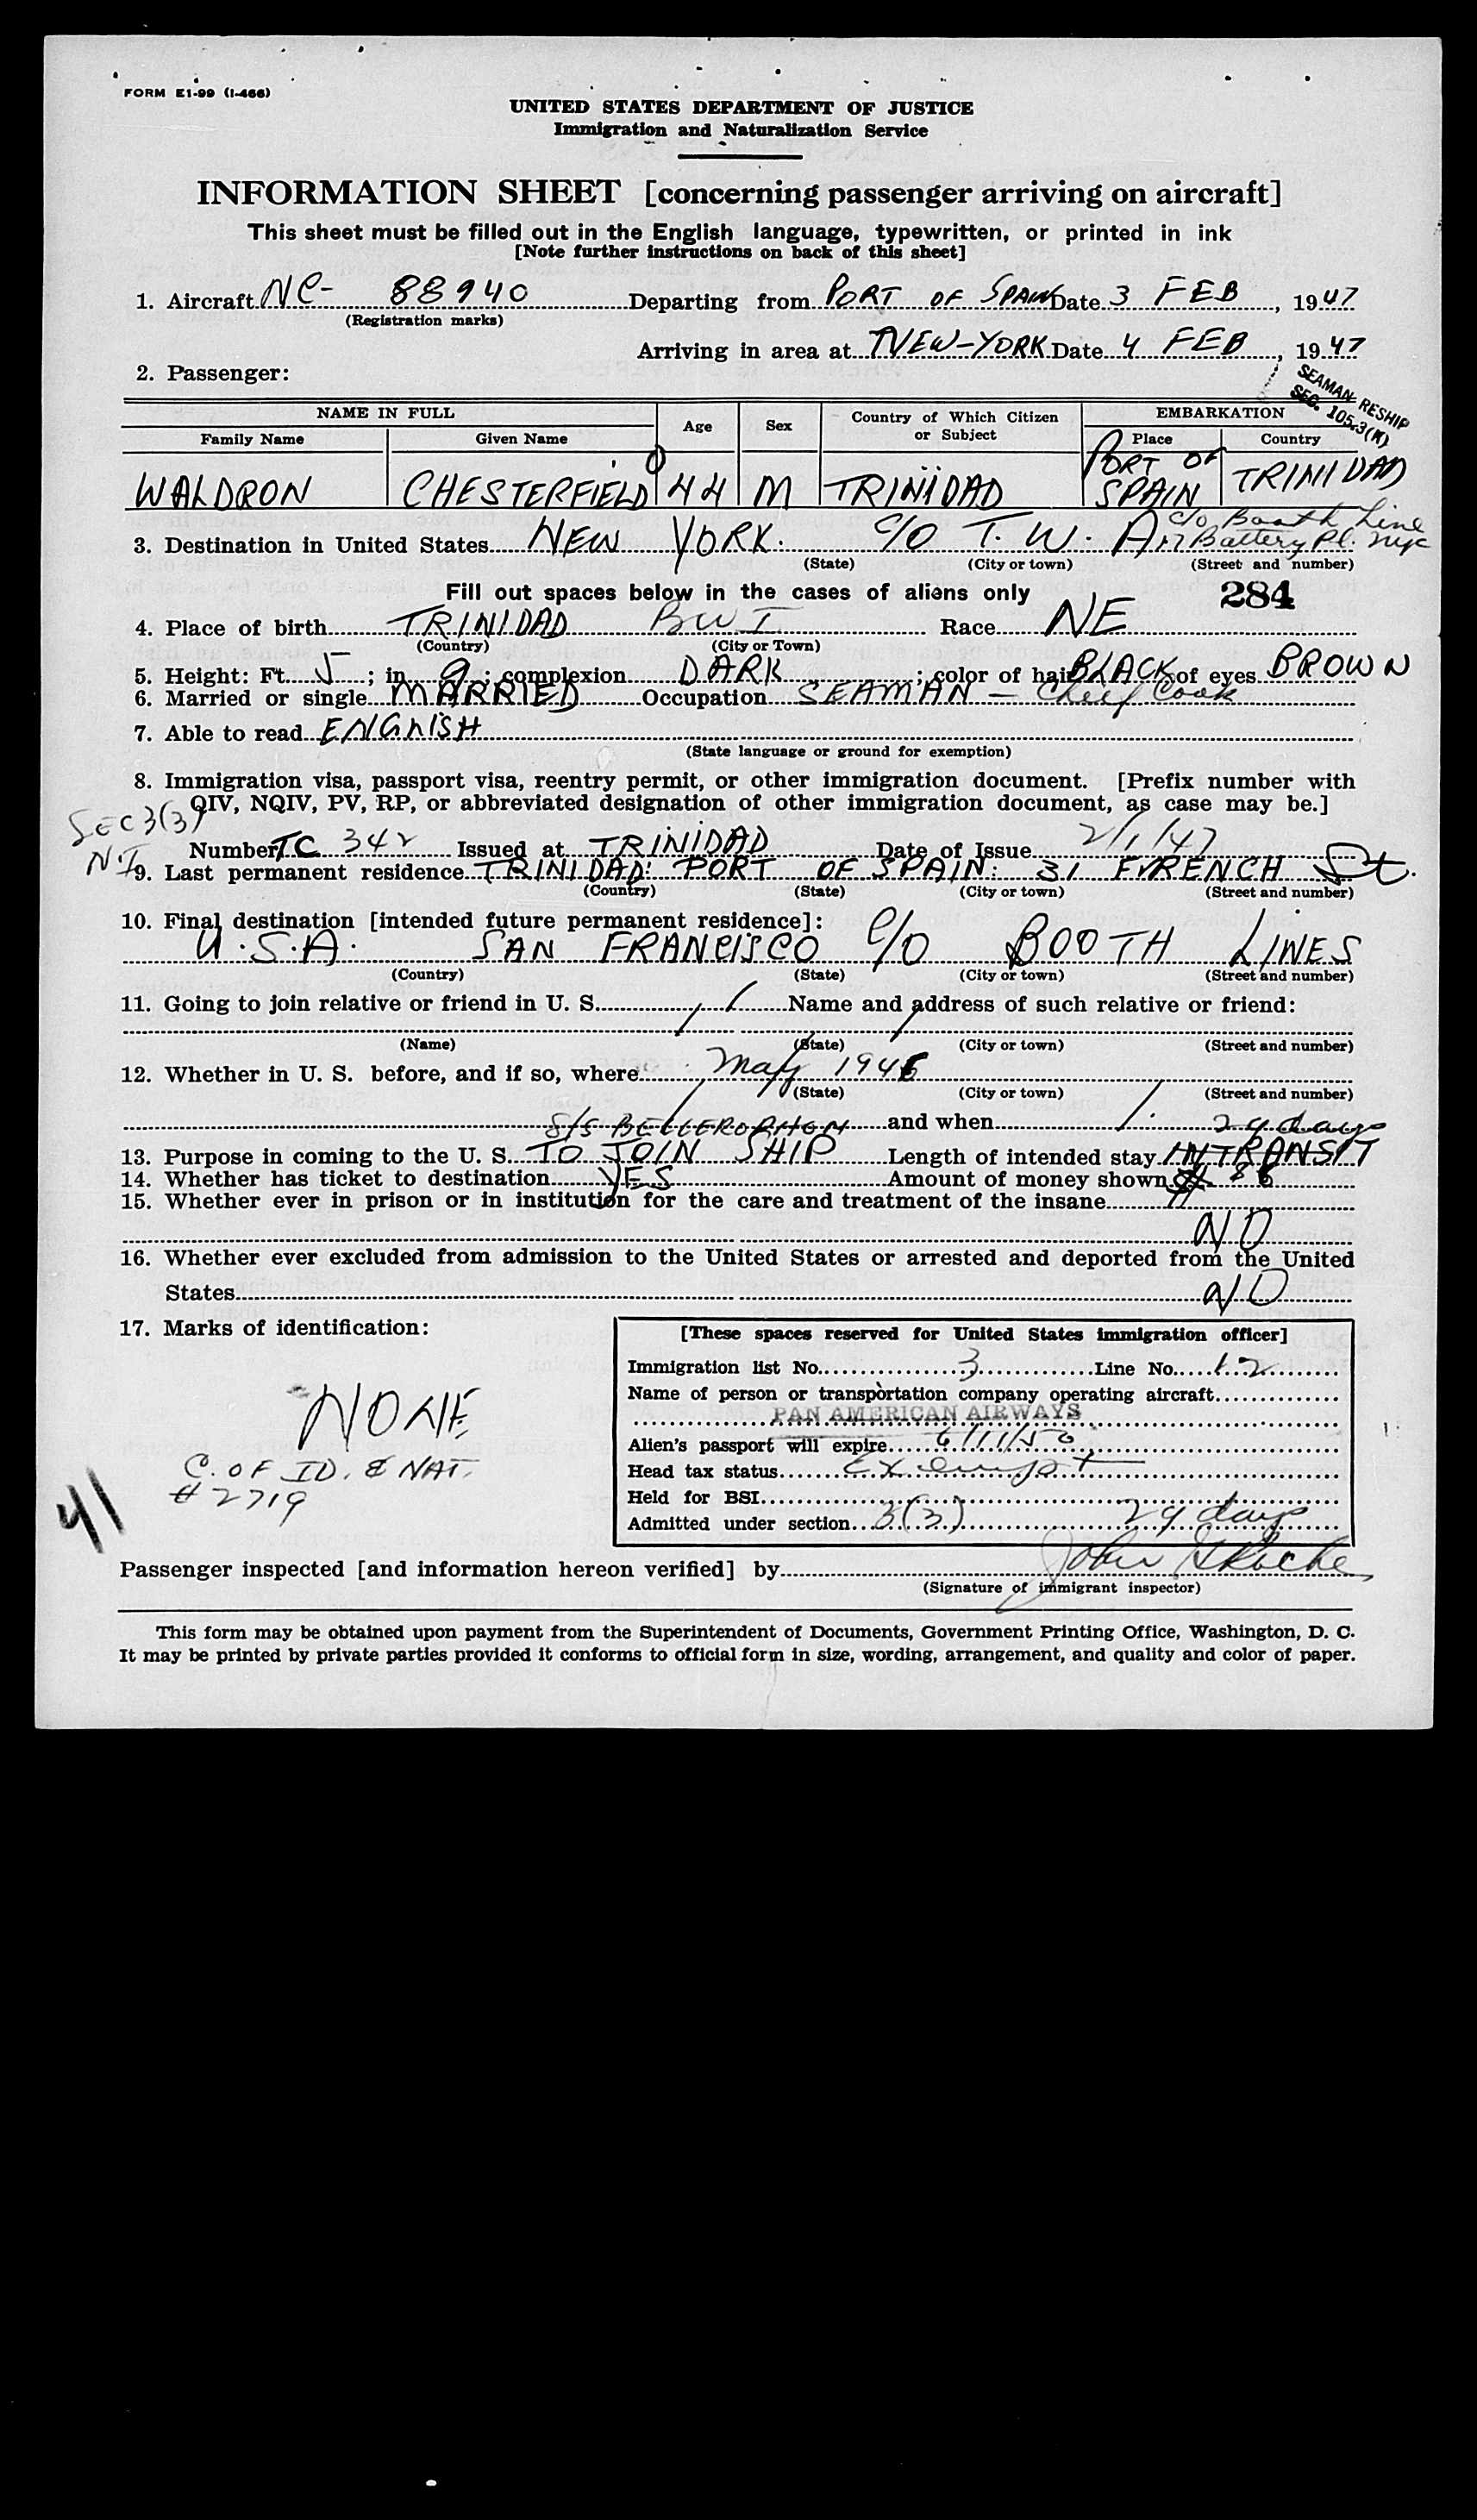 FORM E1-99 (I-466)
UNITED STATES DEPARTMENT OF JUSTICE
Immigration and Naturalization Service
INFORMATION SHEET [concerning passenger arriving on aircraft]
This sheet must be filled out in the English language, typewritten, or printed in ink
[Note further instructions on back of this sheet]
1. Aircraft NC- 88940 Departing from PORT OF SPAIN Date 3 FEB, 1947
(Registration marks)
Arriving in area at NEW-YORK Date 4 FEB, 1947
2. Passenger:
SEAMAN RESHIP
SEC. 105.3(K)
NAME IN FULL Age Sex Country of Which Citizen or Subject EMBARKATION
Family Name Given Name Place Country
WALDRON CHESTERFIELD 44 M TRINIDAD PORT OF SPAIN TRINIDAD
c/o Booth Line
3. Destination in United States NEW YORK. C/O T. W. A 17 Battery Pl. nyc
(State) (City or town) (Street and number)
Fill out spaces below in the cases of aliens only 284
4. Place of birth TRINIDAD BWI Race NE
(Country) (City or Town)
5. Height: Ft. 5; in. 9; complexion DARK; color of hair BLACK of eyes BROWN
6. Married or single MARRIED Occupation SEAMAN - Chief Cook
7. Able to read ENGLISH
(State language or ground for exemption)
8. Immigration visa, passport visa, reentry permit, or other immigration document. [Prefix number with
QIV, NQIV, PV, RP, or abbreviated designation of other immigration document, as case may be.]
SEC 3(3)
N.I
Number TC 342 Issued at TRINIDAD Date of Issue 2/1/47
9. Last permanent residence TRINIDAD: PORT OF SPAIN: 31 FRENCH St.
(Country) (State) (City or town) (Street and number)
10. Final destination [intended future permanent residence]:
U.S.A. SAN FRANCISCO C/O BOOTH LINES
(Country) (State) (City or town) (Street and number)
11. Going to join relative or friend in U. S. / Name and address of such relative or friend:
(Name) (State) (City or town) (Street and number)
12. Whether in U. S. before, and if so, where May 1946
(State) (City or town) (Street and number)
S/S BELLEROPHON and when 29 days
13. Purpose in coming to the U. S. TO JOIN SHIP Length of intended stay INTRANSIT
14. Whether has ticket to destination YES Amount of money shown
15. Whether ever in prison or in institution for the care and treatment of the insane
NO
16. Whether ever excluded from admission to the United States or arrested and deported from the United
States NO
17. Marks of identification:
NONE
C. OF ID. & NAT.
# 2719
41
[These spaces reserved for United States immigration officer]
Immigration list No. 3 Line No. 12
Name of person or transportation company operating aircraft
PAN AMERICAN AIRWAYS
Alien's passport will expire 6/11/50
Head tax status Exempt
Held for BSI
Admitted under section 3(3) 29 days
Passenger inspected [and information hereon verified] by John
(Signature of immigrant inspector)
This form may be obtained upon payment from the Superintendent of Documents, Government Printing Office, Washington, D. C.
It may be printed by private parties provided it conforms to official form in size, wording, arrangement, and quality and color of paper.